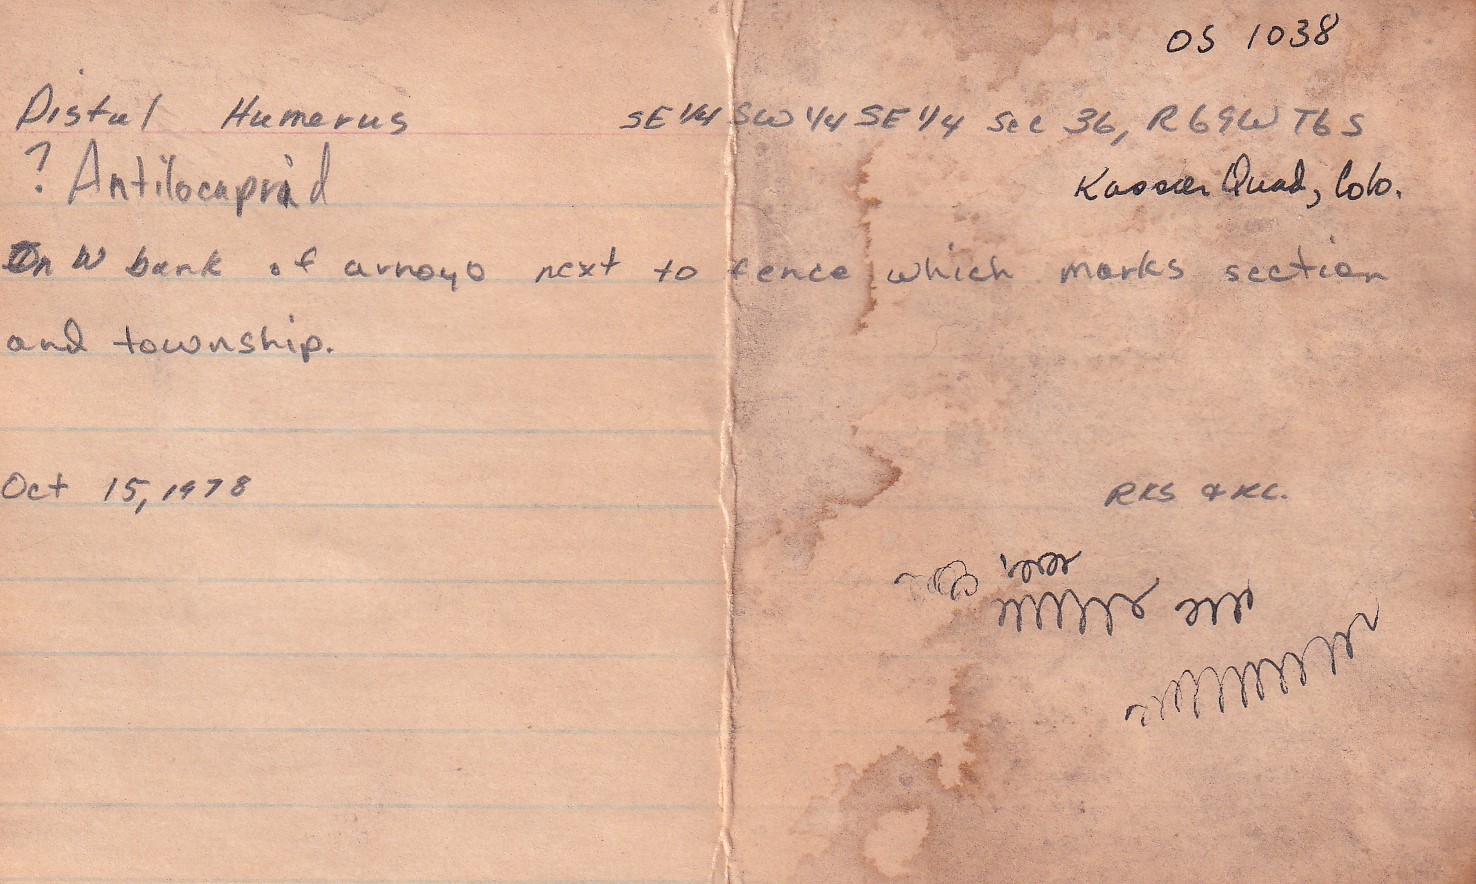 OS 1038
Distal Humerus SE 1/4 SW 1/4 SE 1/4 Sec 36, R69W T6S
? Antilocaprid Kassler Quad, Colo.
On W bank of arroyo next to fence which marks section
and township.
Oct 15, 1978 RKS & KC.